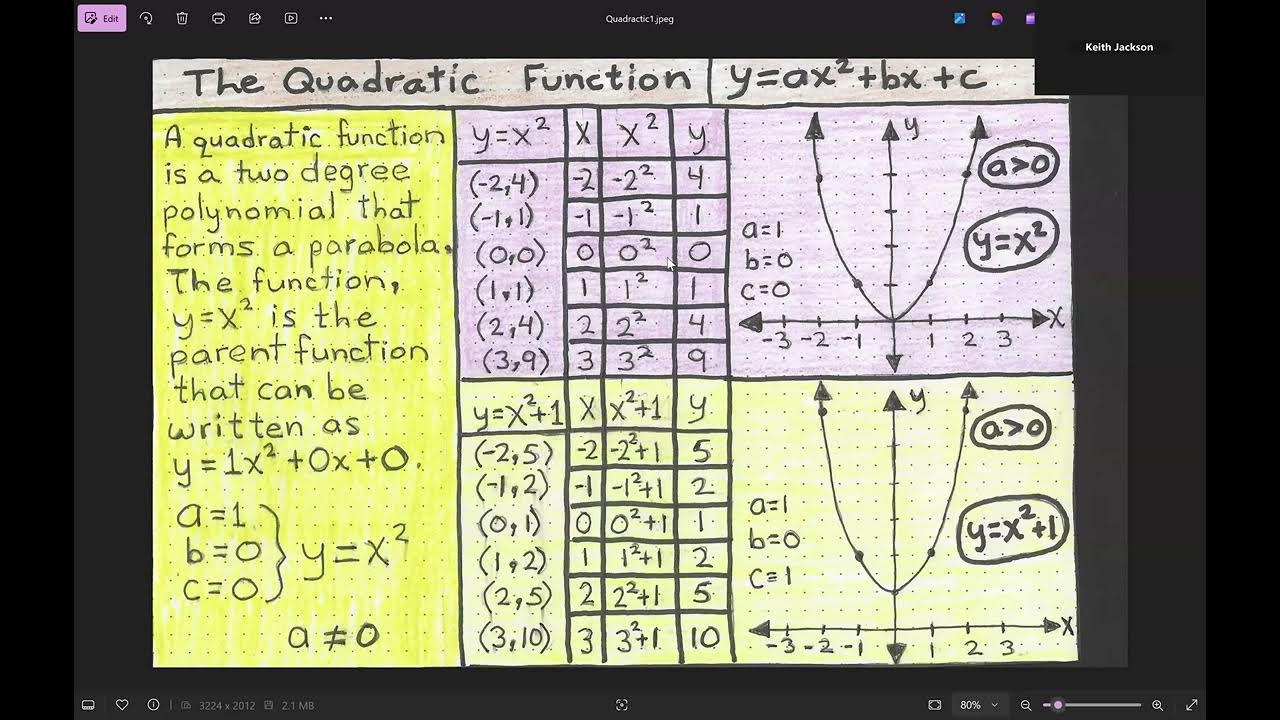 Edit
Quadractic1.jpeg
Keith Jackson
The Quadratic Function y=ax²+bx+c
A quadratic function
is a two degree
polynomial that
forms a parabola.
The function,
y=x² is the
parent function
that can be
written as
y=1x²+0x+0.
a=1
b=0
c=0
y=x²
a≠0
y=x² x x² y
(-2,4) -2 -2² 4
(-1,1) -1 -1² 1
(0,0) 0 0² 0
(1,1) 1 1² 1
(2,4) 2 2² 4
(3,9) 3 3² 9
y
a>0
y=x²
a=1
b=0
c=0
x
-3 -2 -1 1 2 3
y=x²+1 x x²+1 y
(-2,5) -2 -2²+1 5
(-1,2) -1 -1²+1 2
(0,1) 0 0²+1 1
(1,2) 1 1²+1 2
(2,5) 2 2²+1 5
(3,10) 3 3²+1 10
y
a>0
y=x²+1
a=1
b=0
c=1
x
-3 -2 -1 1 2 3
3224 x 2012 2.1 MB 80%